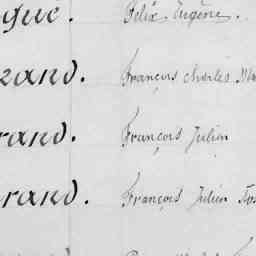 gue. Félix Eugène.
rand. François Charles
rand. François Julien
rand. François Julien